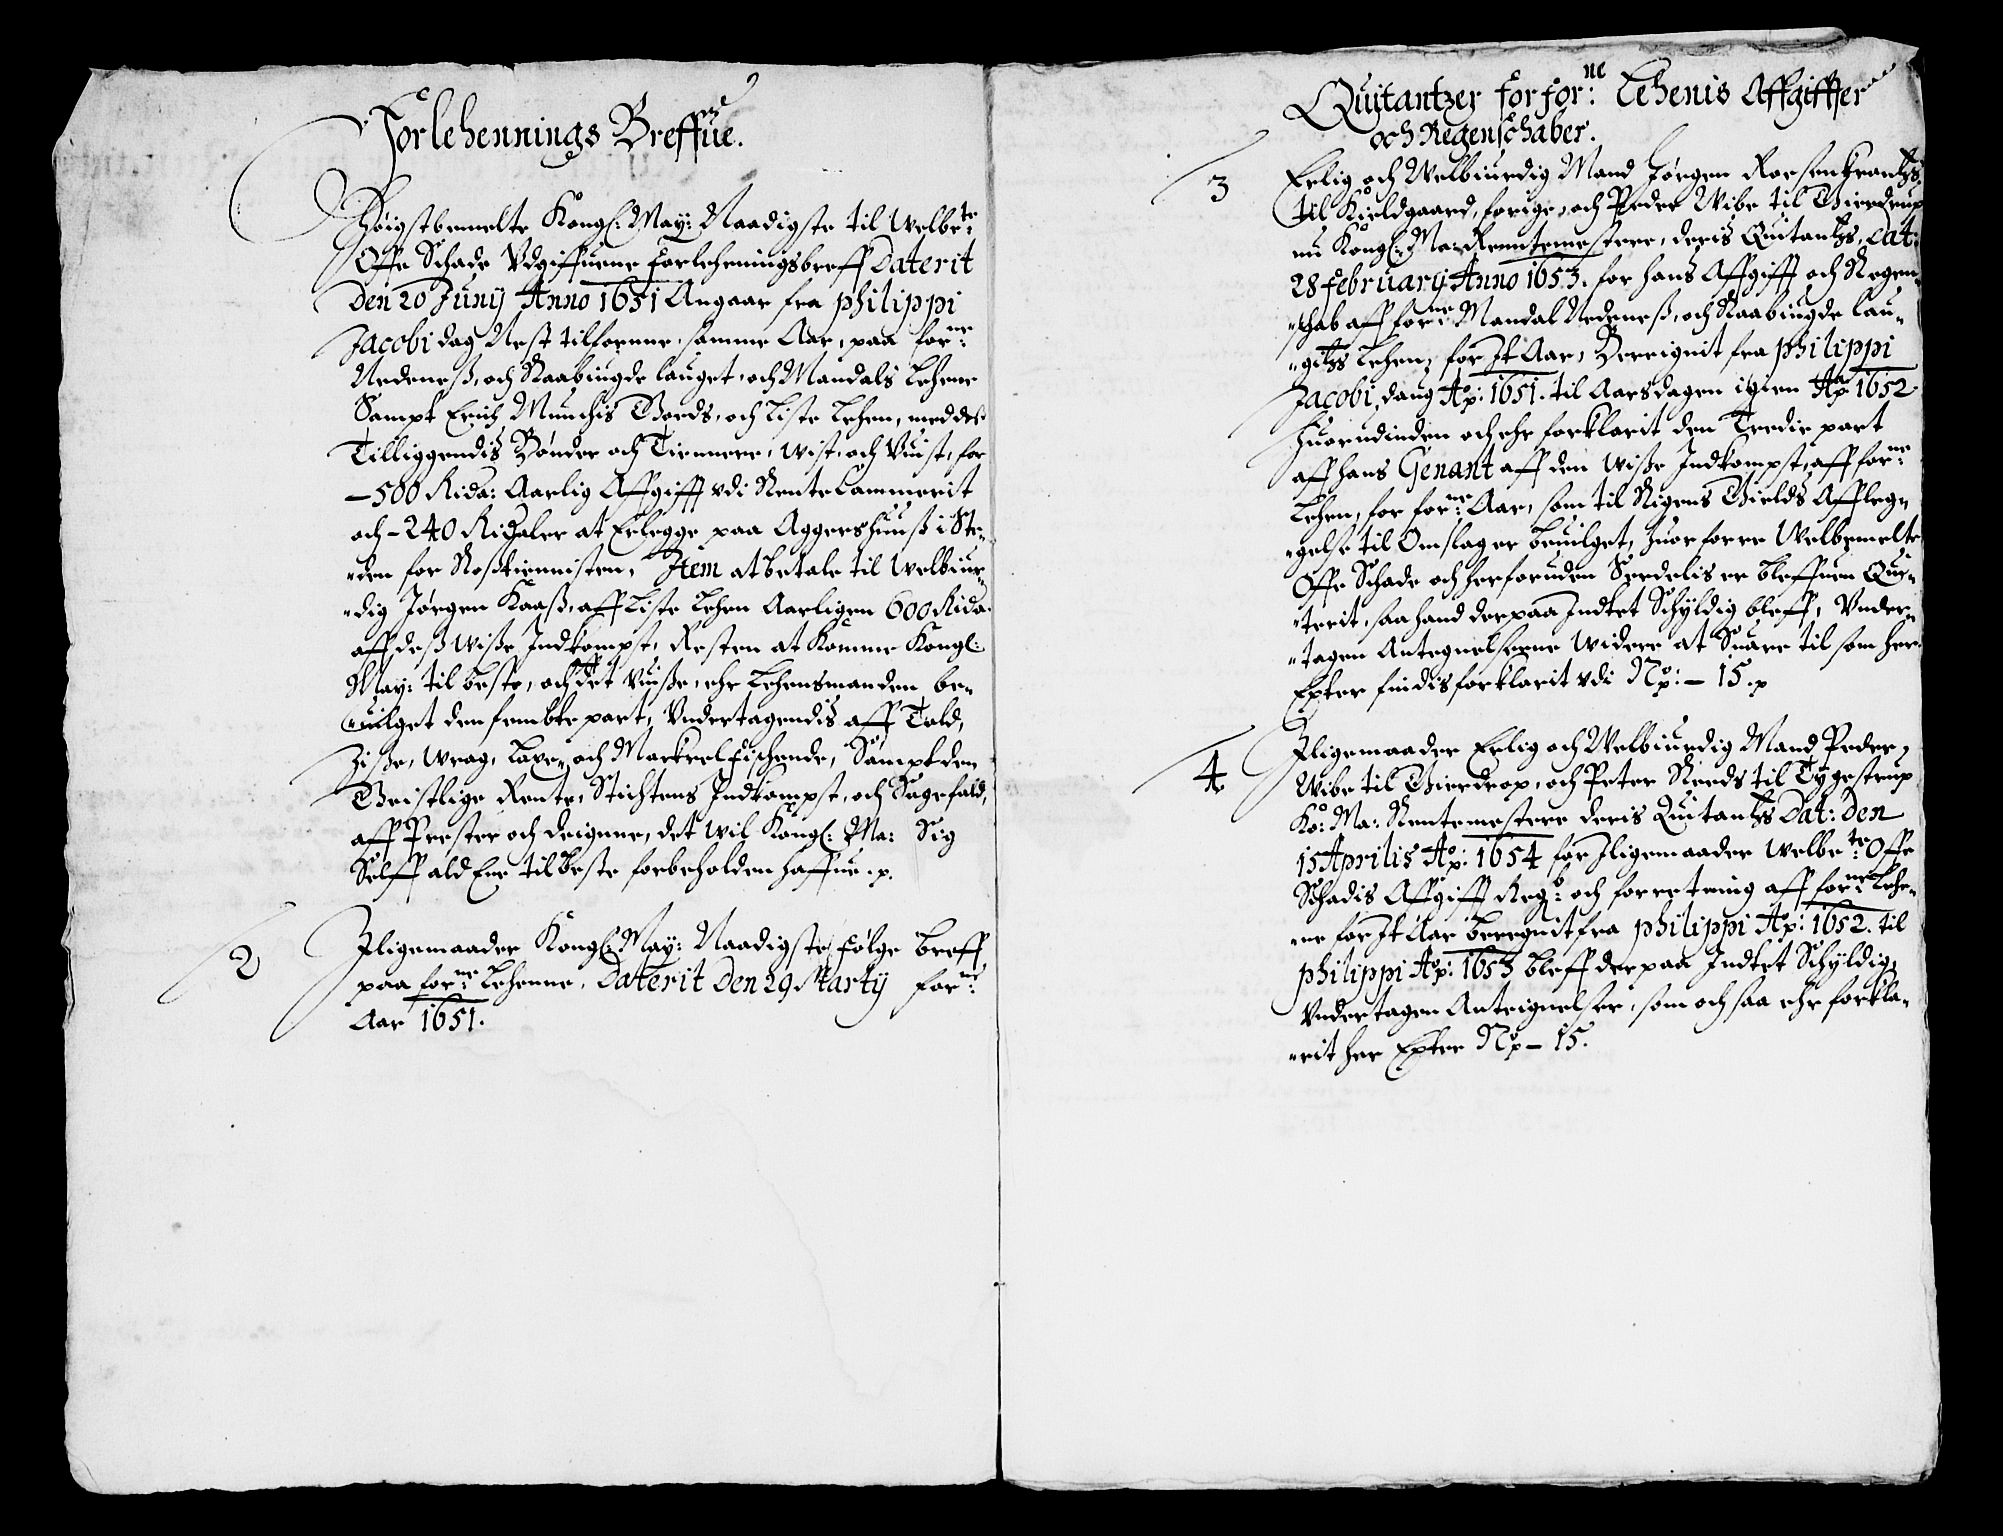 Forlehennings Breffue.
Høigstbemelte Kongl: May: Naadigste til Welbte:
Offe Schade Vdgiffuene forlehningsbreff Daterit
Den 20 Juny Anno 1651 Angaar fra philippi
Jacobi dag Nest tilforne, samme Aar, paa forne:
Nedeneß, och Raabiugde lauget, och Mandals Lehene
Sampt Erich Munchis Gords, och Liste Lehen, med deß
Tilliggendis Bønder och Tiennere, wist, och Vuist, for
– 500 Rida: Aarlig Affgifft vdi Rente Cammerit
och – 240 Rixdaler at Erlegge paa Aggershuuß i Ste„
„den for Roßtiennisten, Item at betale til Welbiur„
„dig Jørgen Kaaß, aff Liste Lehen Aarligen 600 Rida:
aff deß wiße Indkompst, Resten at Komme Kongl:
May: til beste, och aff det Vuiße, ehr Lehensmanden be„
„uilget den fembte part, Vndertagendis aff Told,
Zise, Wrag, Laxe„ och Markrel fischende, Sampt den
Geistlige Rente, Stichtens Indkompst, och Sagefald,
aff Prester och deigene, det wil Kongl: Ma: Sig
Selff aldEne til beste forbeholden haffue .p.
2 Iligemaader Kongl: May: Naadigste følge breff
paa forne: Lehenne, Daterit Den 29 Marty forne:
Aar 1651.
Quitantzer for forne: Lehenis Affgiffter
och Regenschaber.
3 Erlig och Welbiurdig Mand Jørgen Rosenkrantzs
til Kieldgaard, forige, och Peder Wibe til Gierdrup
nu Kongl: Ma: Renntemestere, deris Quitantzs, Dat:
28 february Anno 1653. for hans Affgifft och Regen„
„schab aff forne: Mandal Nedeneß, och Raabiugde lau„
„gitzs Lehen, for It Aar, Bereignit fra philippi
Jacobi, daug Ao: 1651. til Aarsdagen igien Ao 1652
Huorudinden och ehr forklarit den Tredie part
aff hans Genant aff den wiße Indkompst, aff forne:
Lehen, for forne: Aar, som til Rigens Gields Affleg„
„gelse til Omslag er beuilget, Huor forre Welbemelte
Offe Schade och her foruden Serdelis er bleffuen Qui„
„terit, saa hand derpaa Indtet Schyldig bleff, Vnder„
„tagen Antegnelserne widere at Suare til som her
Epter findis forklarit vdi No: – 15 .p
4 Iligemaader Erlig och Welbiurdig Mand Peder
Wibe til Gierdrop, och Peter Reeds til Tygestrup
Ko: Ma: Rentemestere deris Quitantzs Dat: Den
15 Aprilis Ao: 1654 for Iligemaader welbte: Offe
Schadis Affgifft Regb: och forretning aff forne: Lehe„
„ne for It Aar beregnit fra philippi Ao: 1652. til
philippi Ao: 1653 bleff derpaa Indtet Schyldig,
Vndertagen Anteignelser, som och saa ehr forkla„
„rit her Epter No – 15.